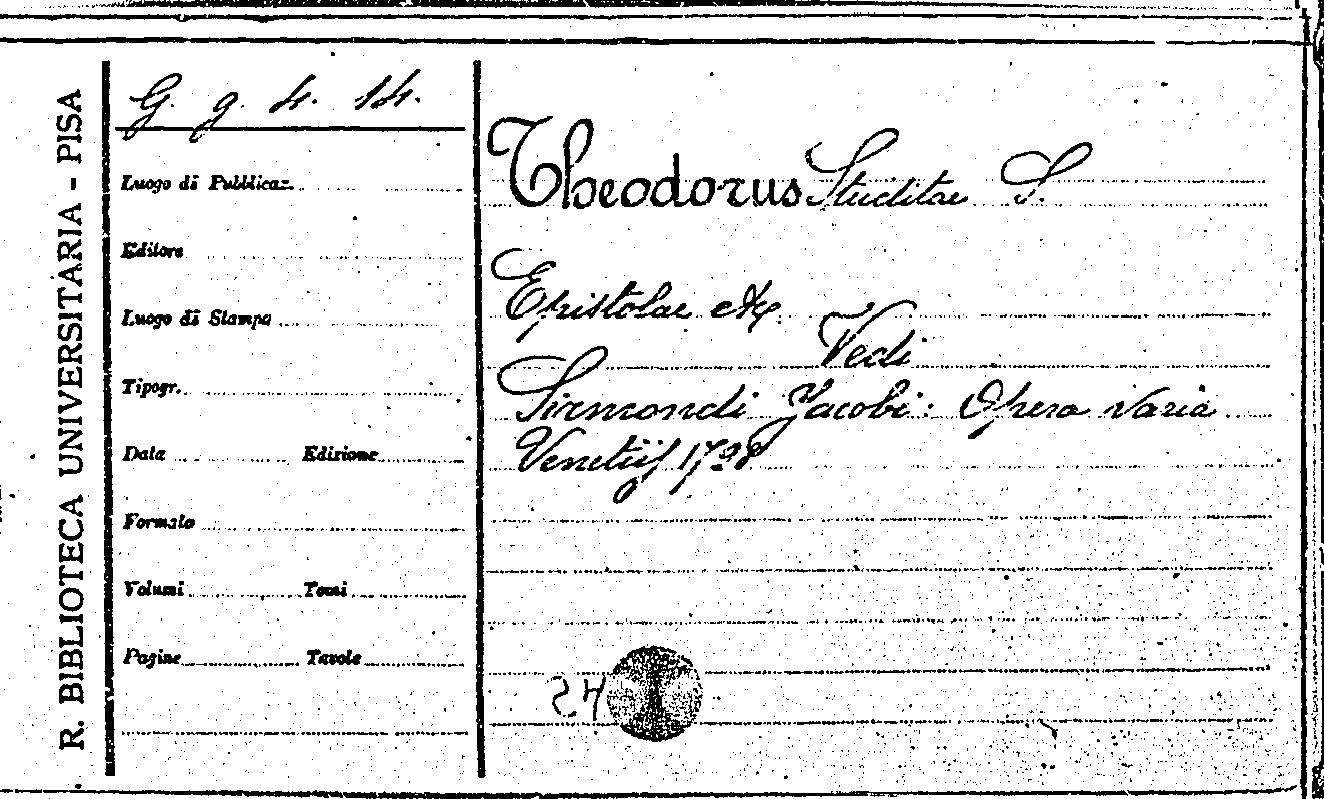 R. BIBLIOTECA UNIVERSITARIA - PISA
G. g. 4. 14.
Luogo di Pubblicaz.
Editore
Luogo di Stampa
Tipogr.
Data Edizione
Formato
Volumi Tomi
Pagine Tavole
Theodorus Studitae S.
Epistolae etc.
Vedi
Sirmondi Jacobi: Opera varia
Venetiis 1728
24